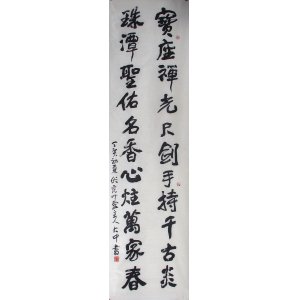 寶座禪光尺劍手持千古炎
珠潭聖佑名香心炷萬家春
丁亥初夏
大中書